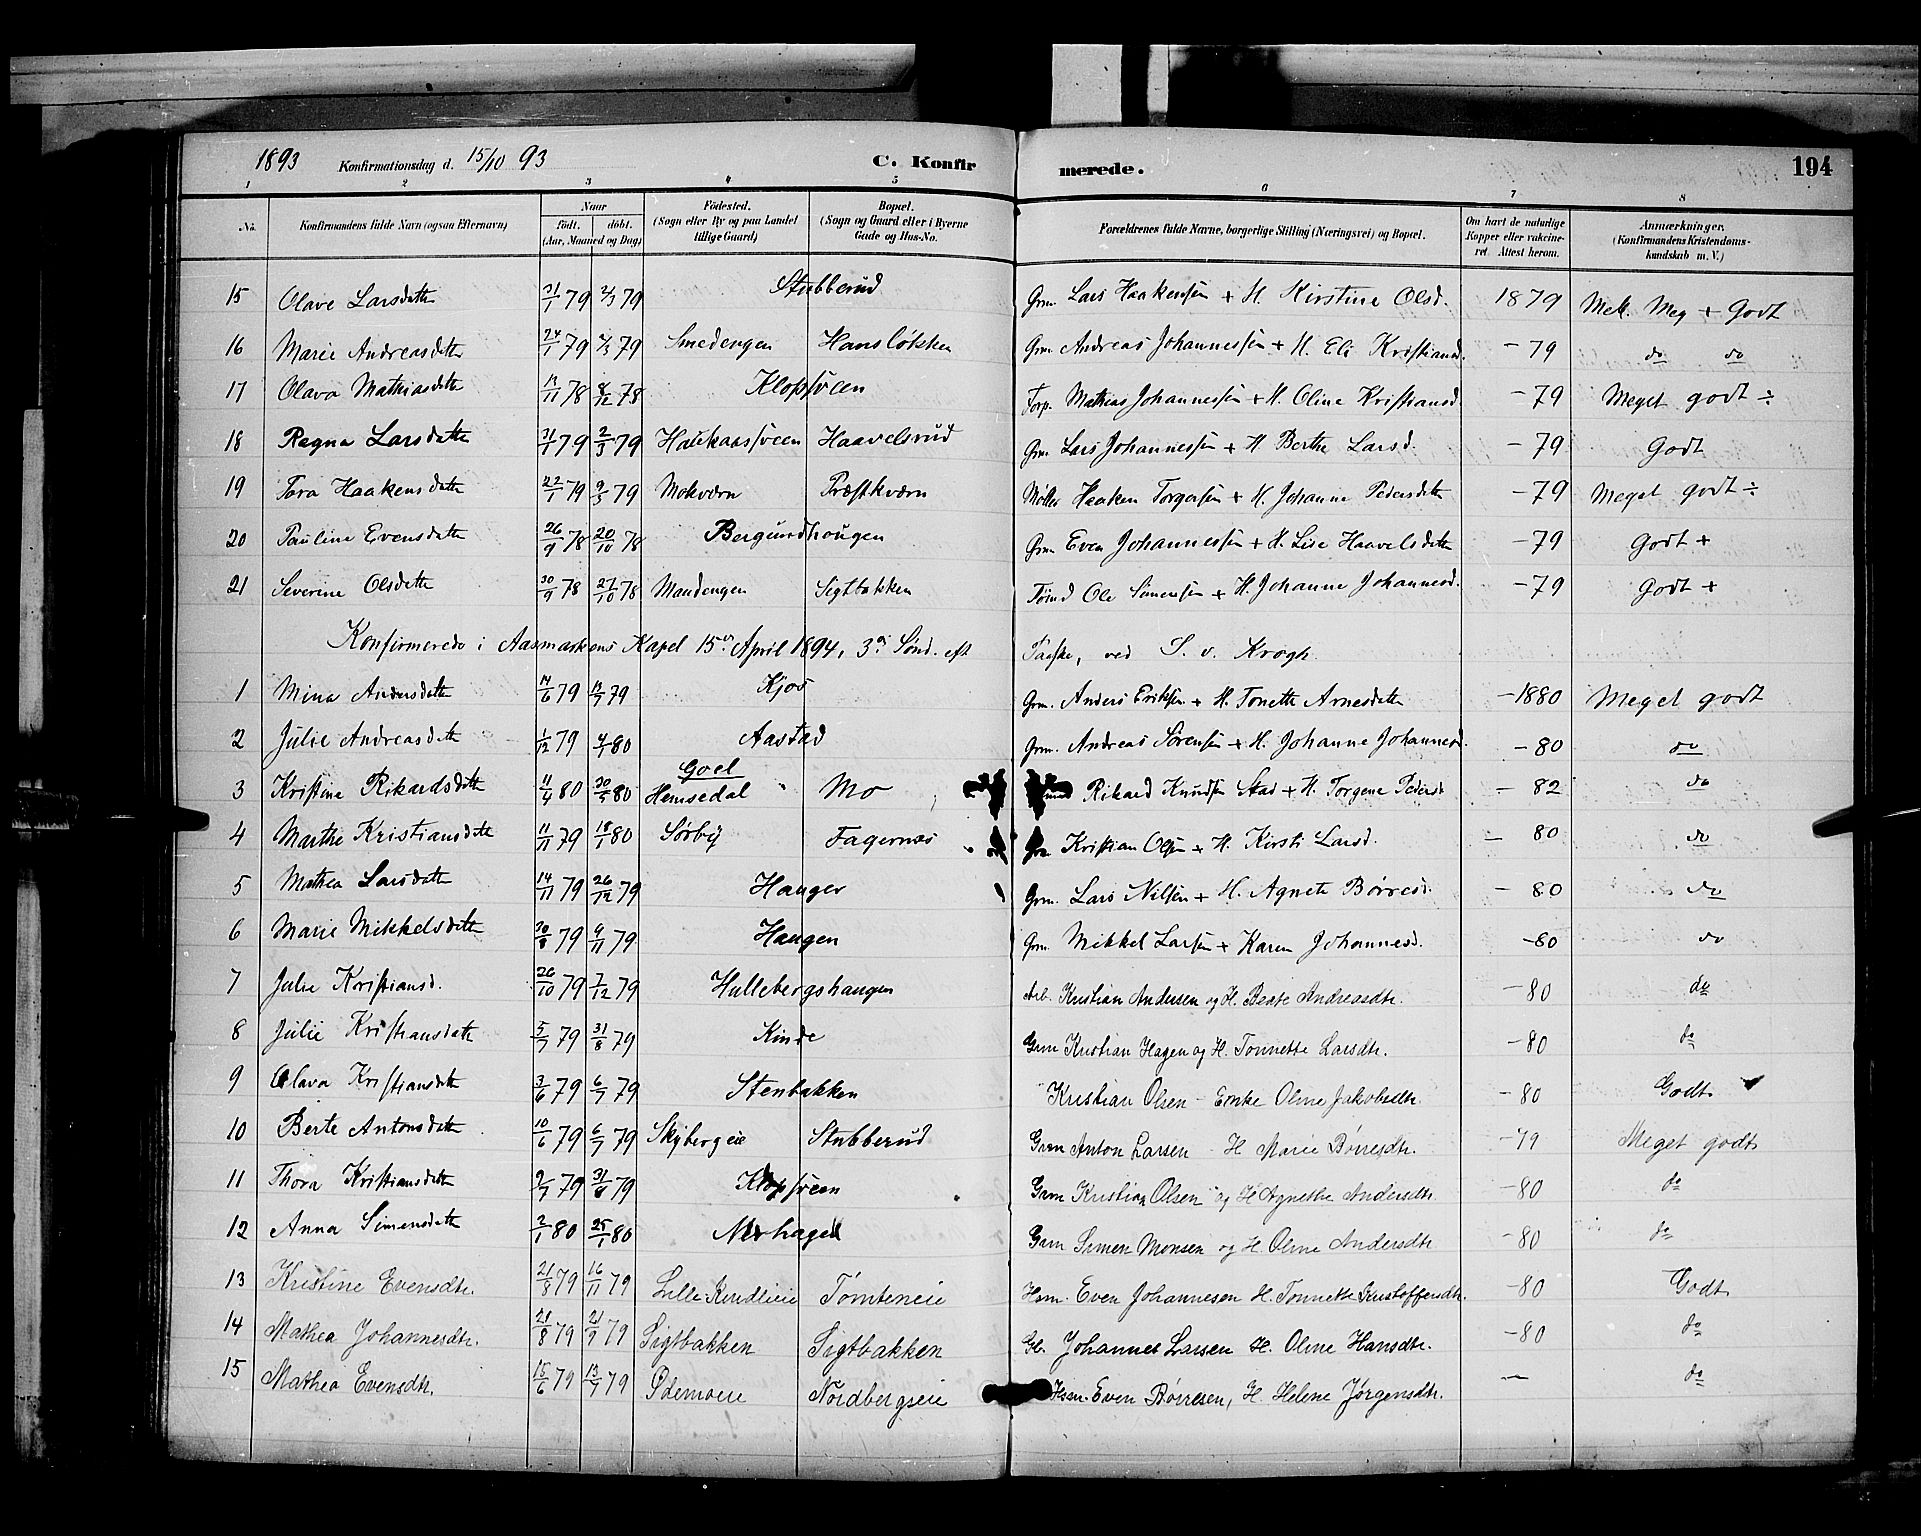 1893 Konfirmationsdag d. 15/10 93 C. Konfirmerede. 194
1 2 3 4 5 6 7 8
No. Konfirmandens fulde Navn (ogsaa Efternavn) Naar født. døbt. (Aar, Maaned og Dag) Fødested. (Sogn eller By og paa Landet tillige Gaard) Bopæl. (Sogn og Gaard eller i Byerne Gade og Hus-No. Forældrenes fulde Navne, borgerlige Stilling (Næringsvei) og Bopæl. Om havt de naturlige Kopper eller vaccineret. Attest herom. Anmærkninger. (Konfirmandens Kristendomskundskab m. V.)
15 Olave Larsdatte 31/1 79 2/3 79 Stubberud Grm. Lars Haakensen + H. Kirstine Olsd. 1879 Mell. Meg + Godt
16 Marie Andreasdatte 24/1 79 2/3 79 Smedengen Hansløkken Grm. Andreas Johannessen + H. Eli Kristiansd. - 79 do do
17 Olava Mathiasdatte 13/11 78 8/12 78 Klopsveen Torp. Mathias Johannessen + H. Oline Kristiansd. - 79 Meget godt ÷
18 Ragna Larsdatte 31/1 79 2/3 79 Haukaasveen Haavelsrud Grm. Lars Johannessen + H Berthe Larsd. - 79 Godt
19 Tora Haakensdatte 22/1 79 9/3 79 Mokværn Præstkværn Møller Haaken Torgersen + H. Johanne Pedersdatte - 79 Meget godt ÷
20 Pauline Evensdatte 26/9 78 20/10 78 Bergundhougen Grm. Even Johannessen + H. Lise Haavelsdatte - 79 Godt +
21 Severine Olsdatte 30/9 78 27/10 78 Maudengen Sigtbakken Tømd Ole Simensen + H. Johanne Johannesd. - 79 Godt +
Konfirmerede i Aasmarkens Kapel 15de April 1894, 3die Sønd. eft Paaske, ved S. v. Krogh.
1 Mina Andersdatte 14/6 79 13/7 79 Kjos Grm. Anders Eriksen + H. Tonette Arnesdatte - 1880 Meget godt
2 Julie Andreasdatte 1/12 79 4/1 80 Aastad Grm. Andreas Sørensen + H. Johanne Johannesd. - 80 do
3 Kristine Rikardsdatte 11/4 80 30/5 80 Goel Hemsedal Mo Rikard Knudsen Stad + H. Torgene Pedersd - 82 do
4 Marthe Kristiansdatte 11/11 79 18/1 80 Sørby Fagernæs Grm Kristian Olsen + H. Kirsti Larsd. - 80 do
5 Mathea Larsdatte 14/11 79 26/12 79 Hauger Grm. Lars Nilsen + H. Agnete Børresd. - 80 do
6 Marie Mikkelsdatte 30/8 79 9/11 79 Haugen Grm. Mikkel Larsen + Karen Johannesd. - 80 do
7 Julie Kristiansd. 26/10 79 7/12 79 Hullebergshaugen Arb. Kristian Andersen og H. Beate Andreasdtr. - 80 do
8 Julie Kristiansdatte 5/7 79 31/8 79 Kinde Grm Kristian Hagen og H. Tonnette Larsdtr. - 80 do
9 Olava Kristiansdatte 3/6 79 6/7 79 Stenbakken Kristian Olsen - Enke Oline Jakobsdtr. - 80 Godt
10 Berte Antonsdatte 10/6 79 6/7 79 Skybergeie Stubberud Grm Anton Larsen H Marie Børresdtr. - 79 Meget godt
11 Thora Kristiansdatte 2/7 79 31/8 79 Klopsveen Grm Kristian Olsen og H Agnethe Andersdtr - 80 do
12 Anna Simensdatte 2/1 80 25/1 80 Nerhagen Grm Simen Monsen og H. Oline Andersdtr - 80 do
13 Kristine Evensdtr. 21/8 79 16/11 79 Lille-Kindlieie Tømteneie Hsm. Even Johannesen H. Tonnette Kristoffersdtr. - 80 Godt
14 Mathea Johannesdtr. 21/8 79 21/9 79 Sigtbakken Sigtbakken Gb. Johannes Larsen H. Oline Hansdtr. - 80 do
15 Mathea Evensdtr. 15/6 79 13/7 79 Odemoeie Nordbergseie Hsm. Even Børresen, H. Helene Jørgensdtr. — do